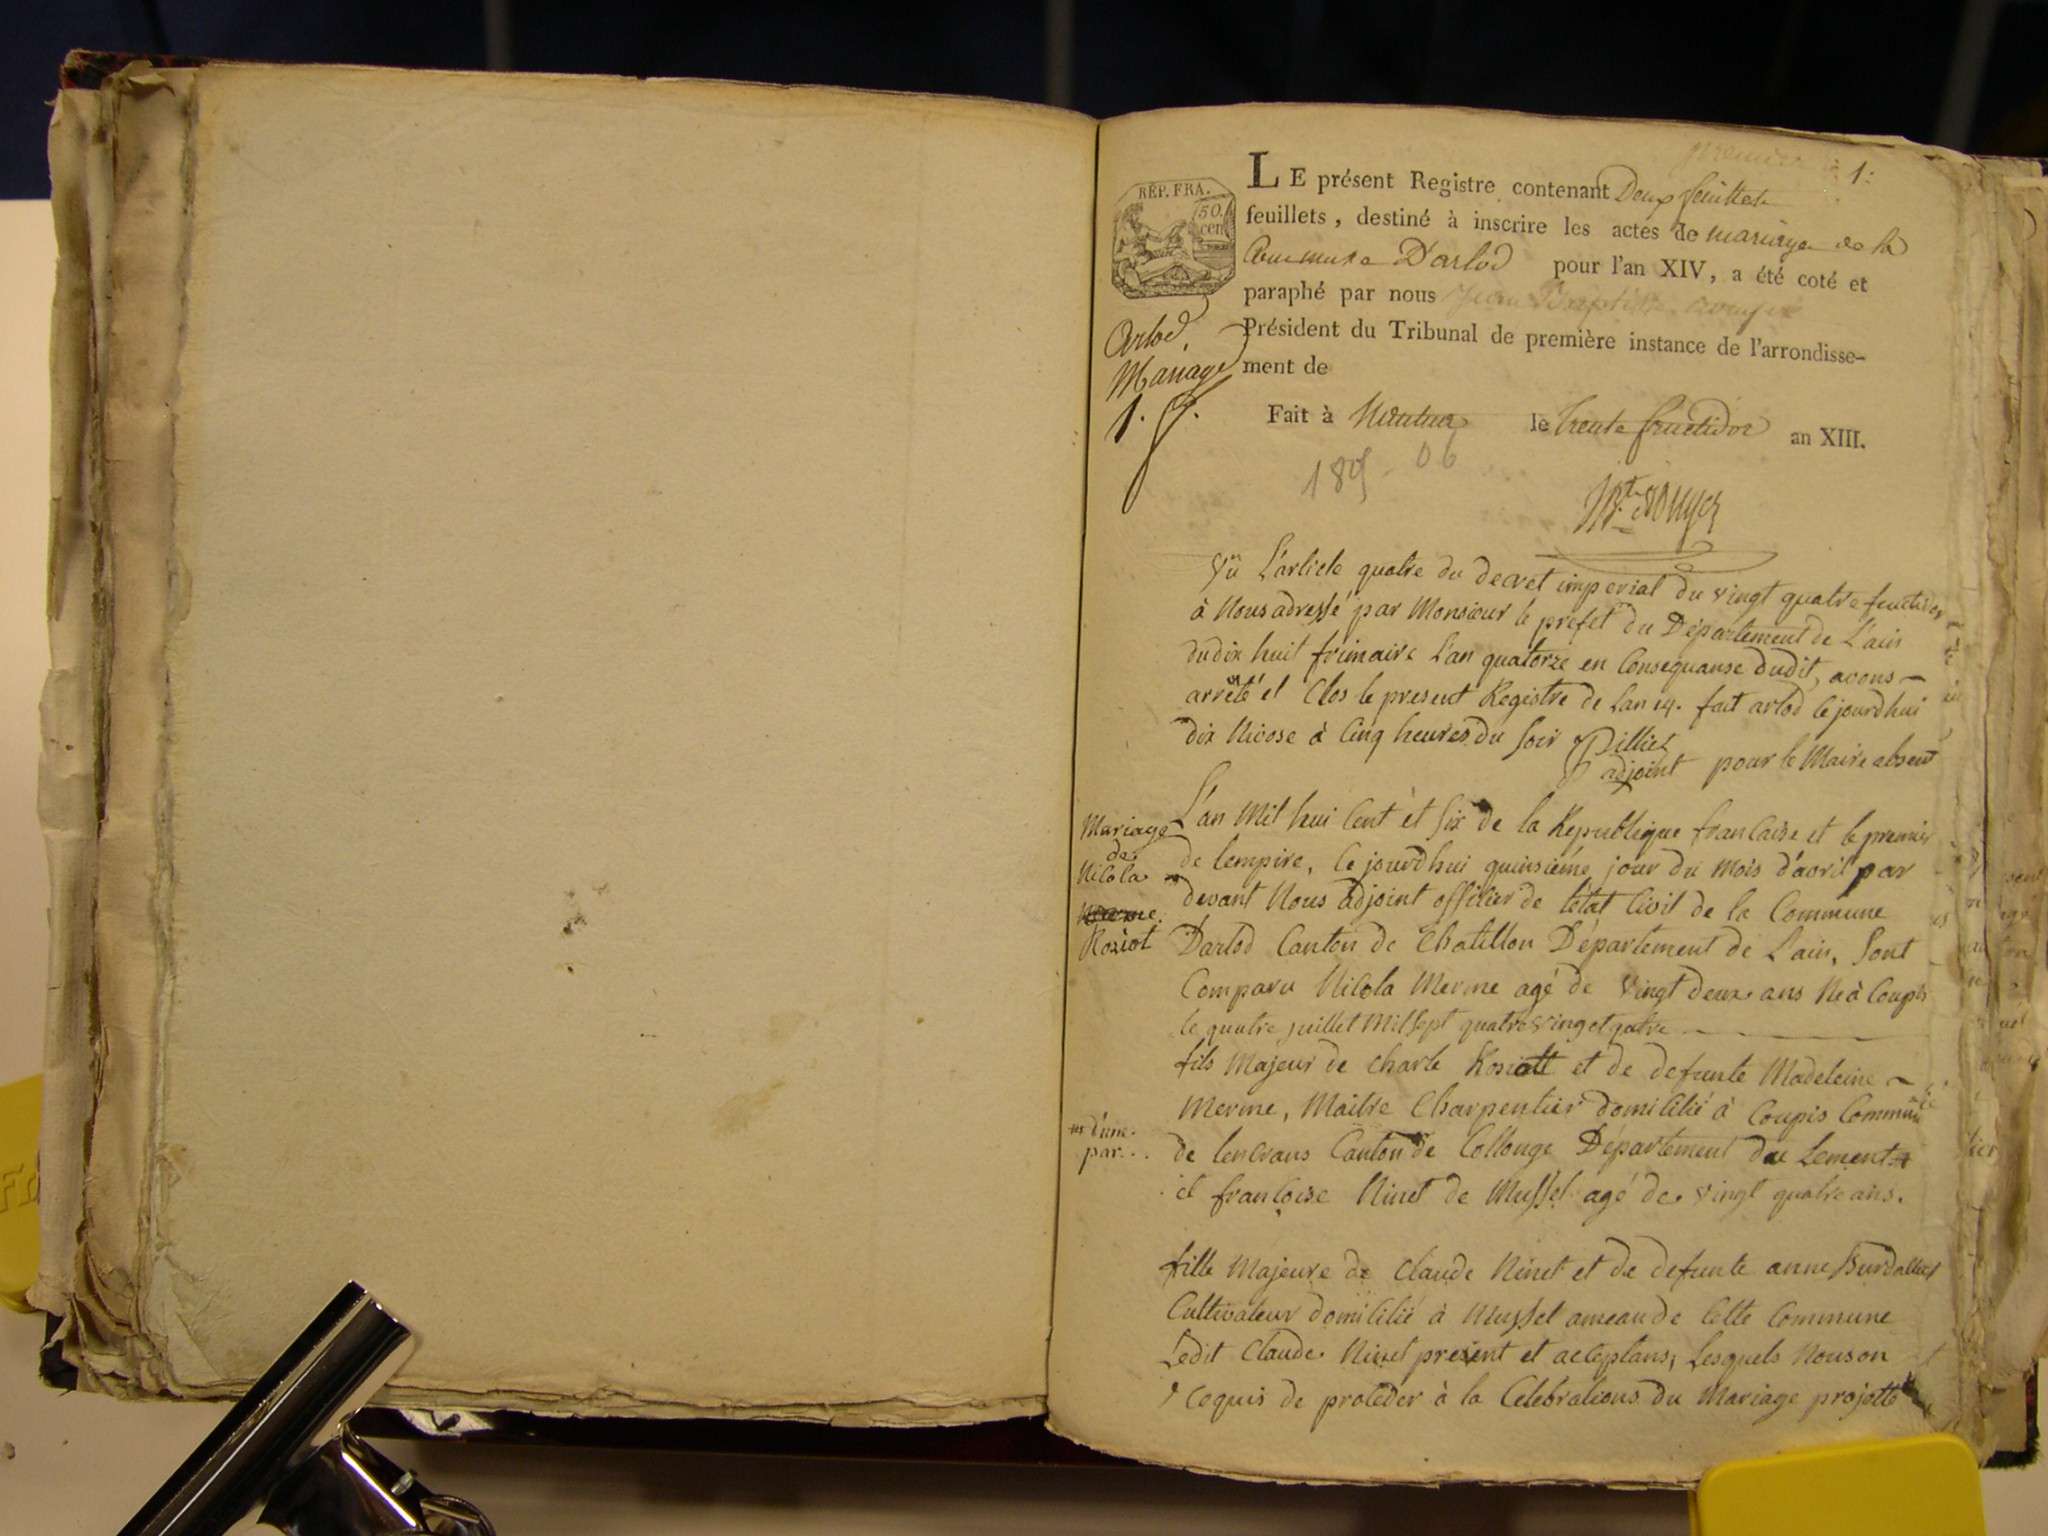 premier 1.
LE présent Registre contenant Deux feuillets
feuillets, destiné à inscrire les actes de mariage de la
Commune D'arlod pour l'an XIV, a été coté et
paraphé par nous Jean Baptiste
Président du Tribunal de première instance de l'arrondisse-
ment de
Fait à Nantua le trente fructidor an XIII.
RÉP. FRA.
50.
cen
Arlod.
Mariage
1.
1805-06
Vu L'article quatre du decret imperial du vingt quatre fructidor
à Nous adressé par Monsieur le prefet du Département de L'ain
du dix huit frimaire L'an quatorze en Consequanse dudit, avons
arrêté et Clos le present Registre de Lan 14. fait arlod Cejourdhui
dix Nivose à Cinq heures du Soir Pilliet
adjoint pour le Maire absent
Mariage
de
Nicola
Merme.
Roziot
L'an Mil hui Cent èt Six de la Republique francaise et le premier
de lempire, Ce jourdhui quinsiéme jour du Mois d'avril par
devant Nous adjoint officier de létat Civil de la Commune
Darlod Canton de Chatillon Département de L'ain, Sont
Comparu Nicola Merme agé de vingt deux ans Né à Coupis
le quatre juillet Mil Sept quatreving et quatre
fils Majeur de Charle Roziott et de defunte Madeleine
Merme, Maitre Charpentier domicilié à Coupis Commune
de lencrans Canton de Collonge Département du Lement
et francoise Ninet de Mussel agé de vingt quatre ans.
d'une
par..
fille Majeure de Claude Ninet et de defunte anne Burdallet
Cultivateur domicilié à Mussel ameau de Cette Commune
Ledit Claude Ninet present et aceptans; Lesquels Nous on
requis de proceder à la Celebrations du Mariage projetté